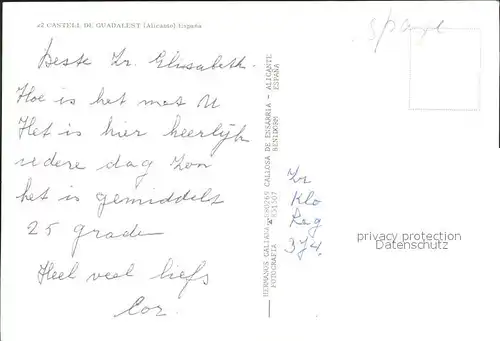 42 CASTELL DE GUADALEST (Alicante) España
Beste Zr. Elisabeth.
Hoe is het met U
Het is hier heerlijk
iedere dag zon
het is gemiddelt
25 graden
Heel veel liefs
Cor.
HERMANOS GALIANA CALLOSA DE ENSARRIA - ALICANTE
FOTOGRAFIA BENIDORM ESPAÑA
Zr
Klo
374.
privacy protection
Datenschutz